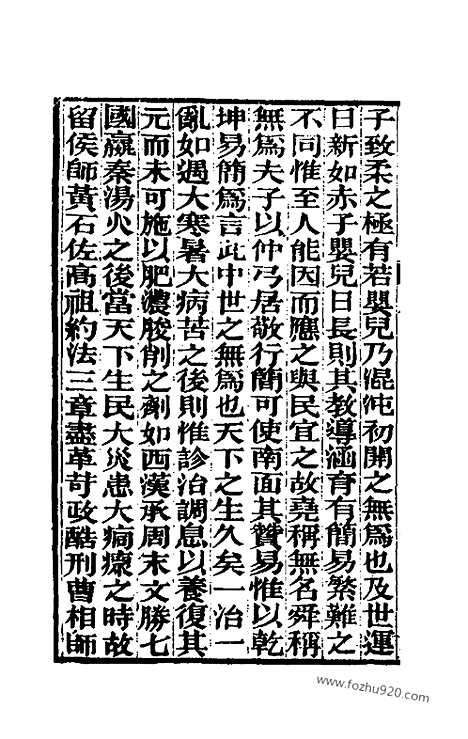 子致柔之極有若嬰兒乃混沌初開之無爲也及世運
日新如赤子嬰兒日長則其教導涵育有簡易繁難之
不同惟至人能因而應之與民宜之故堯稱無名舜稱
無爲夫子以仲弓居敬行簡可使南面其贊易惟以乾
坤易簡爲言此中世之無爲也天下之生久矣一治一
亂如遇大寒暑大病苦之後則惟診治調息以養復其
元而未可施以肥濃朘削之劑如西漢承周末文勝七
國嬴秦湯火之後當天下生民大災患大痌瘝之時故
留侯師黃石佐高祖約法三章盡革苛政酷刑曹相師
www.fozhu920.com